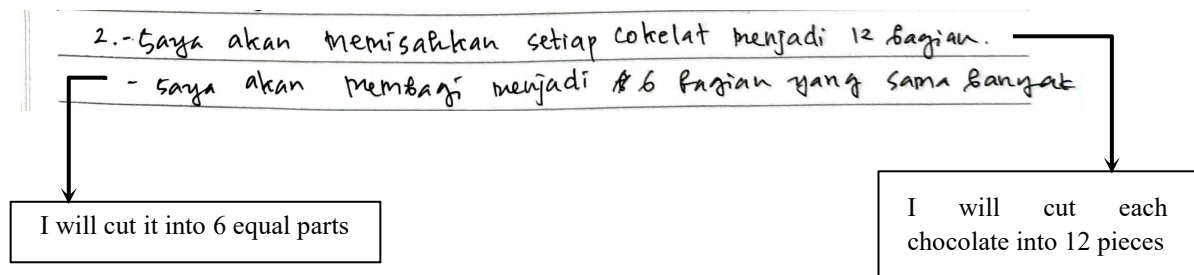 2. - Saya akan memisahkan setiap cokelat menjadi 12 bagian.
- saya akan membagi menjadi 6 bagian yang sama banyak
I will cut it into 6 equal parts
I will cut each
chocolate into 12 pieces